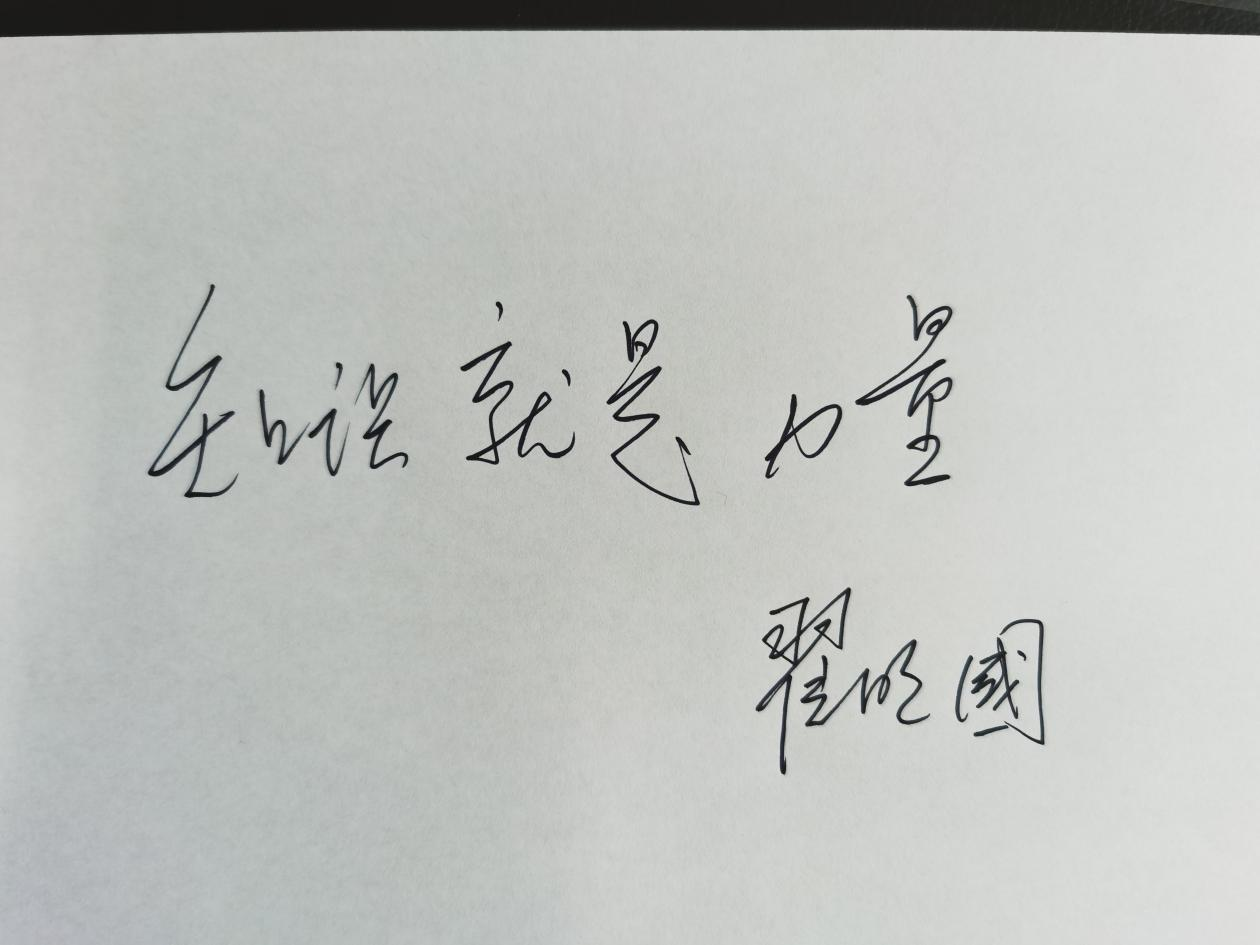 知识就是力量
翟明國